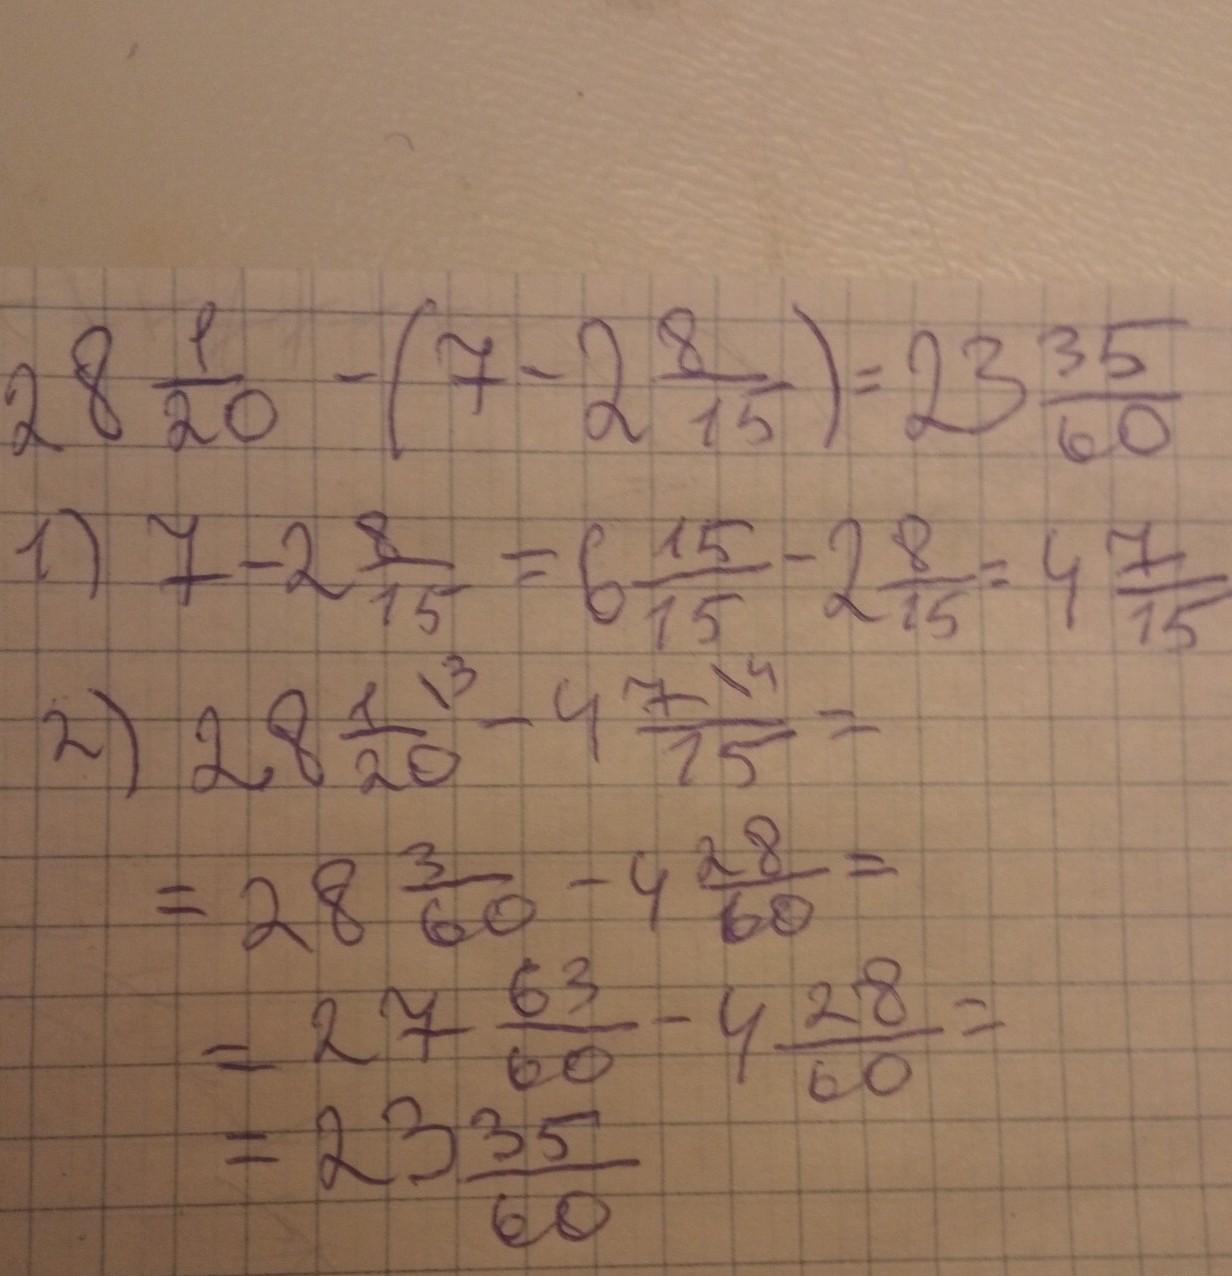 28 1/20 - (7 - 2 8/15) = 23 35/60
1) 7 - 2 8/15 = 6 15/15 - 2 8/15 = 4 7/15
2) 28 1\3/20 - 4 7\4/15 =
= 28 3/60 - 4 28/60 =
= 27 63/60 - 4 28/60 =
= 23 35/60